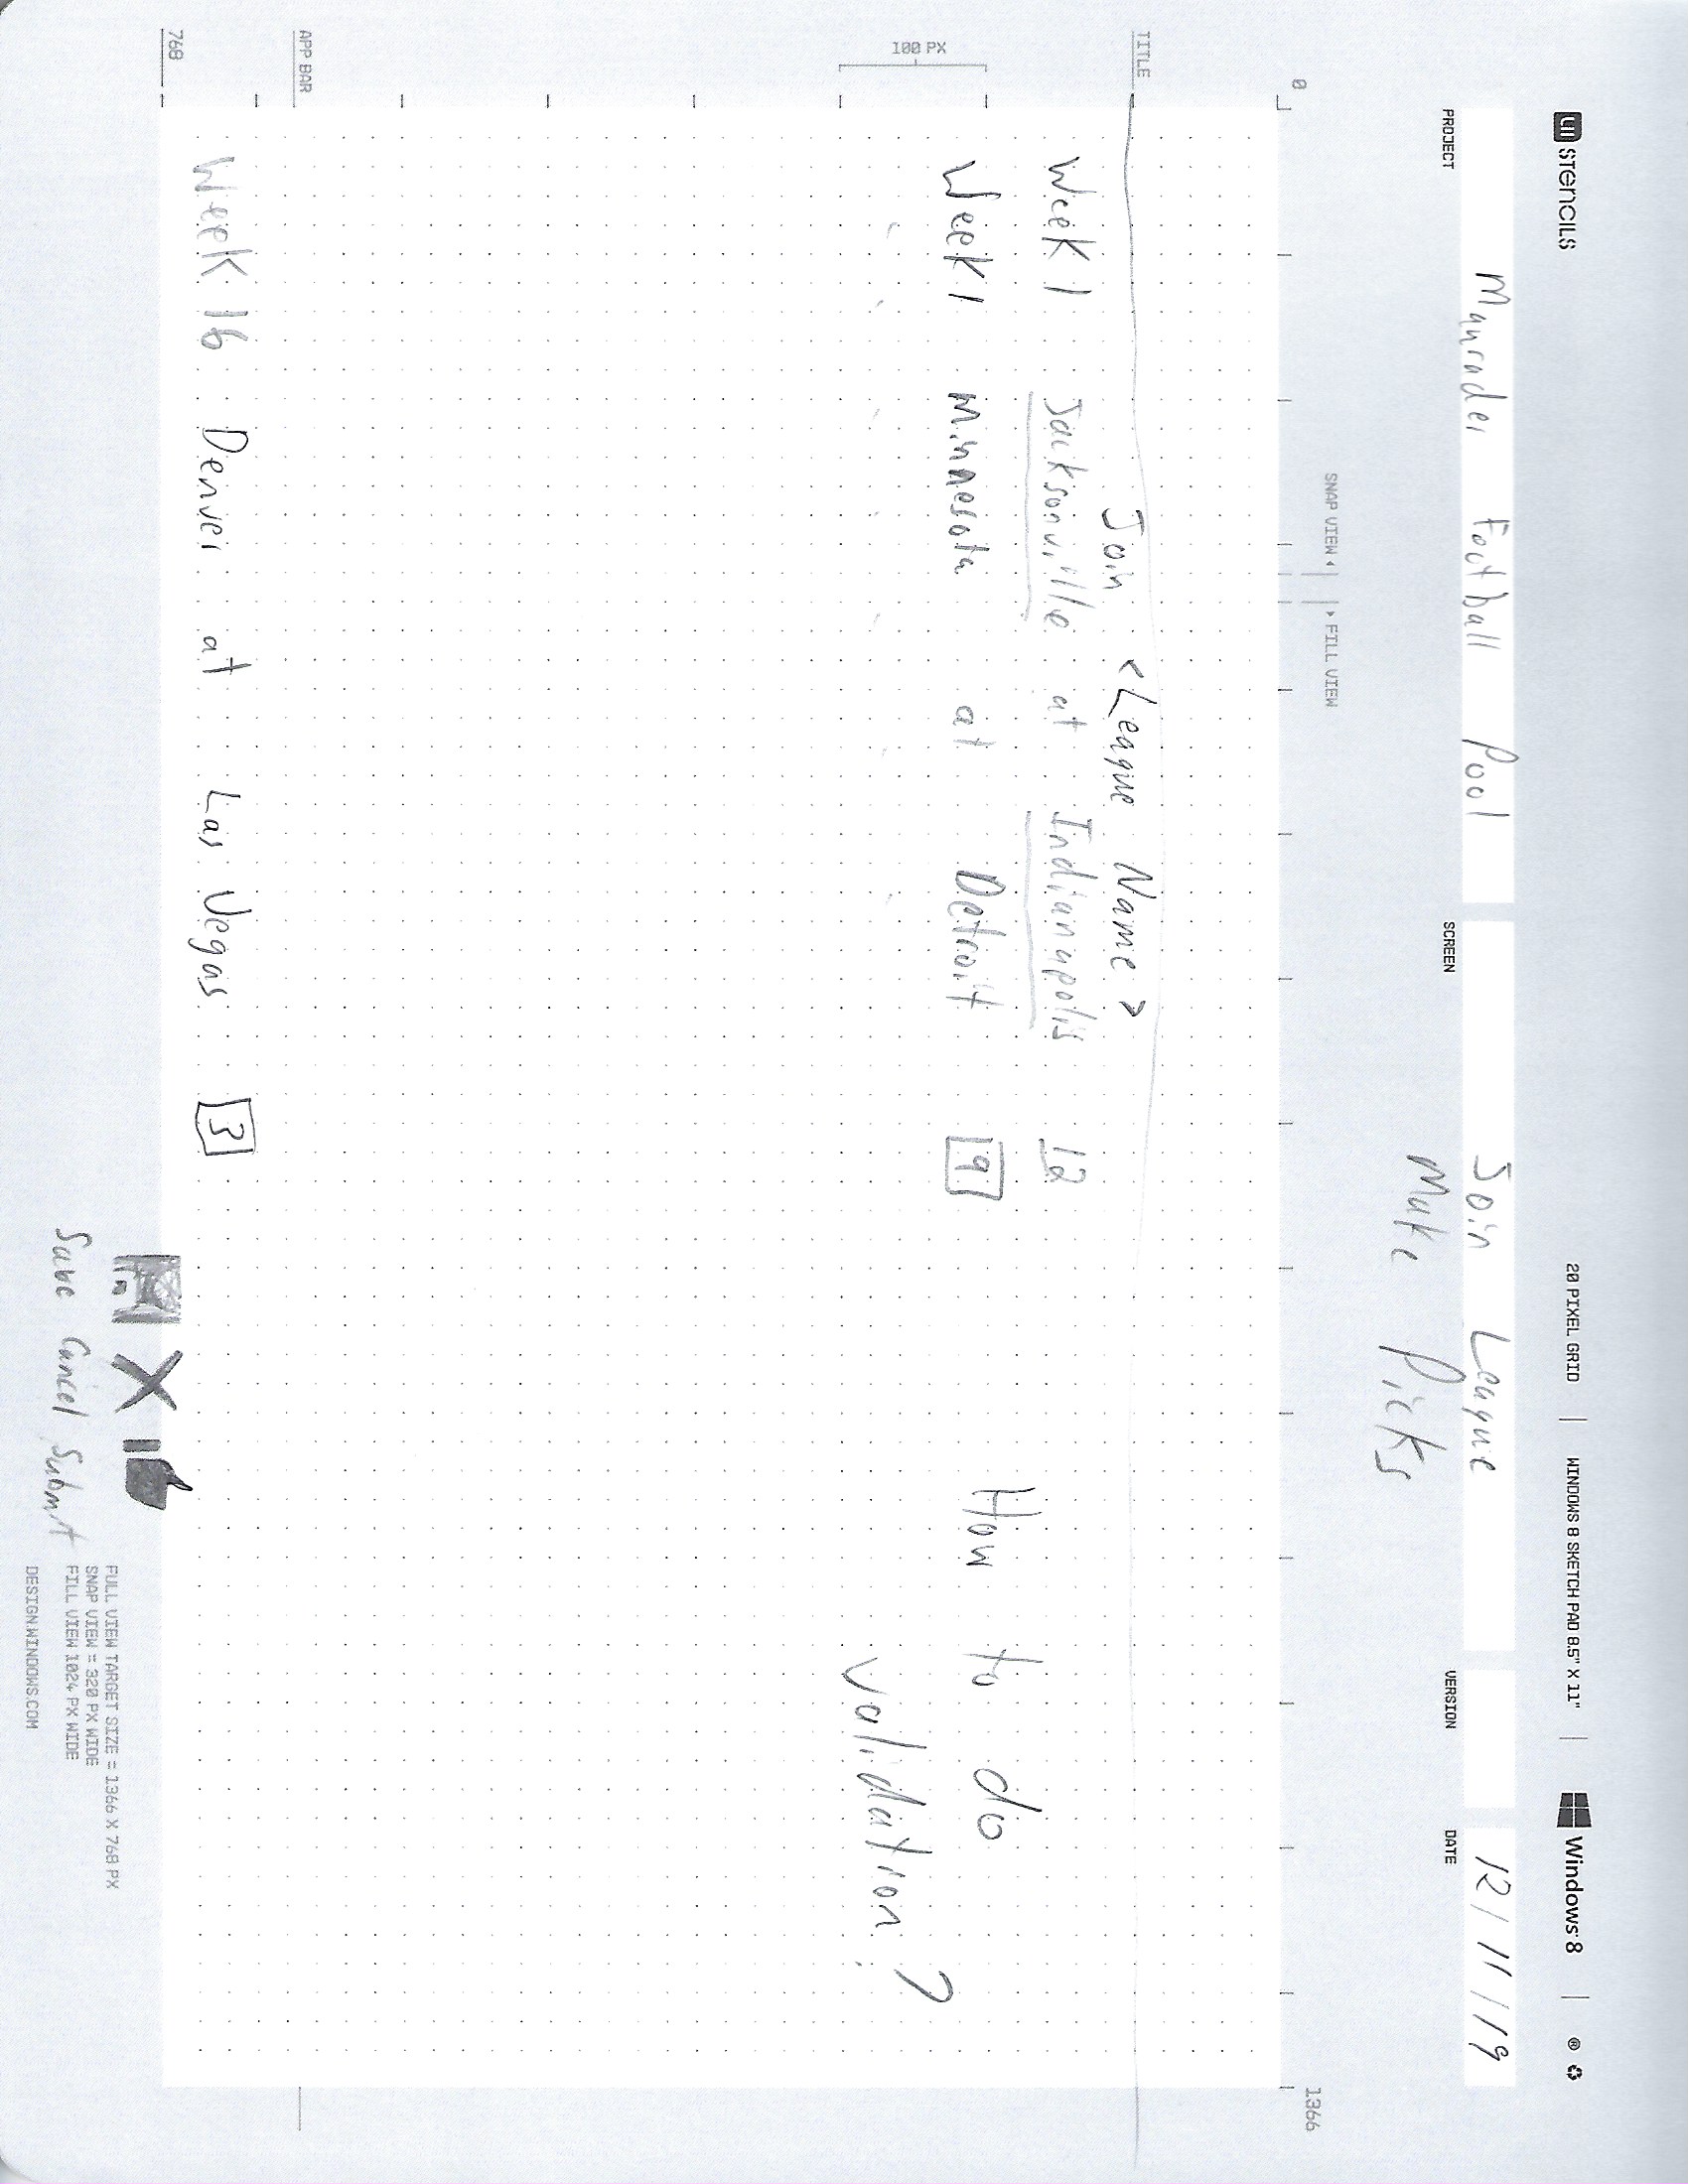 UI STENCILS
20 PIXEL GRID | WINDOWS 8 SKETCH PAD 8.5" X 11" | Windows 8 | ®
Maurader Football Pool
Join League
12/11/19
PROJECT
SCREEN
VERSION
DATE
Make Picks
SNAP VIEW
FILL VIEW
0
1366
TITLE
Join <League Name>
Week 1 Jacksonville at Indianapolis 12
Week 1 Minnesota at Detroit 9
How to do
validation?
100 PX
APP BAR
Week 16 Denver at Las Vegas 3
768
Save Cancel Submit
FULL VIEW TARGET SIZE = 1366 X 768 PX
SNAP VIEW = 320 PX WIDE
FILL VIEW 1024 PX WIDE
DESIGN.WINDOWS.COM